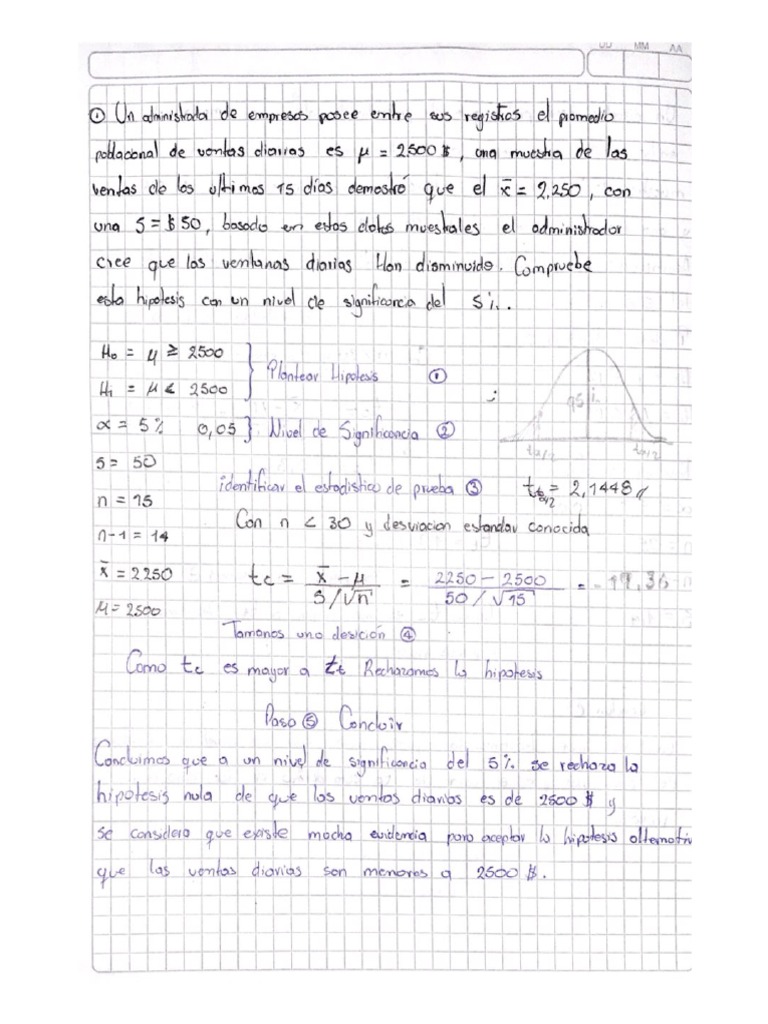 DD MM AA
① Un administrada de empresas posee entre sus registros el promedio
poblacional de ventas diarias es μ = 2500 $, una muestra de las
ventas de los ultimos 15 días demostró que el x̄ = 2,250, con
una S = $ 50, basado en estos datos muestrales el administrador
cree que las ventanas diarias Han disminuido. Compruebe
esta hipotesis con un nivel de significancia del 5%.
H₀ = μ ≥ 2500
H₁ = μ < 2500
Plantear Hipotesis ①
α = 5% 0,05 } Nivel de Significancia ②
95%
tα/2 tα/2
S = 50
identificar el estadistico de prueba ③ t = 2,1448
n = 15
Con n < 30 y desviacion estandar conocida
n-1 = 14
x̄ = 2250
tc = x̄ - μ / S/√n = 2250 - 2500 / 50/√15 = -19,36
μ = 2500
Tamanos una desición ④
Como tc es mayor a tt Rechazamos la hipotesis
Paso ⑤ Concluir
Concluimos que a un nivel de significancia del 5% se rechaza la
hipotesis nula de que las ventas diarias es de 2500 $ y
se considera que existe mucha evidencia para aceptar la hipotesis alternativ
que las ventas diarias son menores a 2500 $.